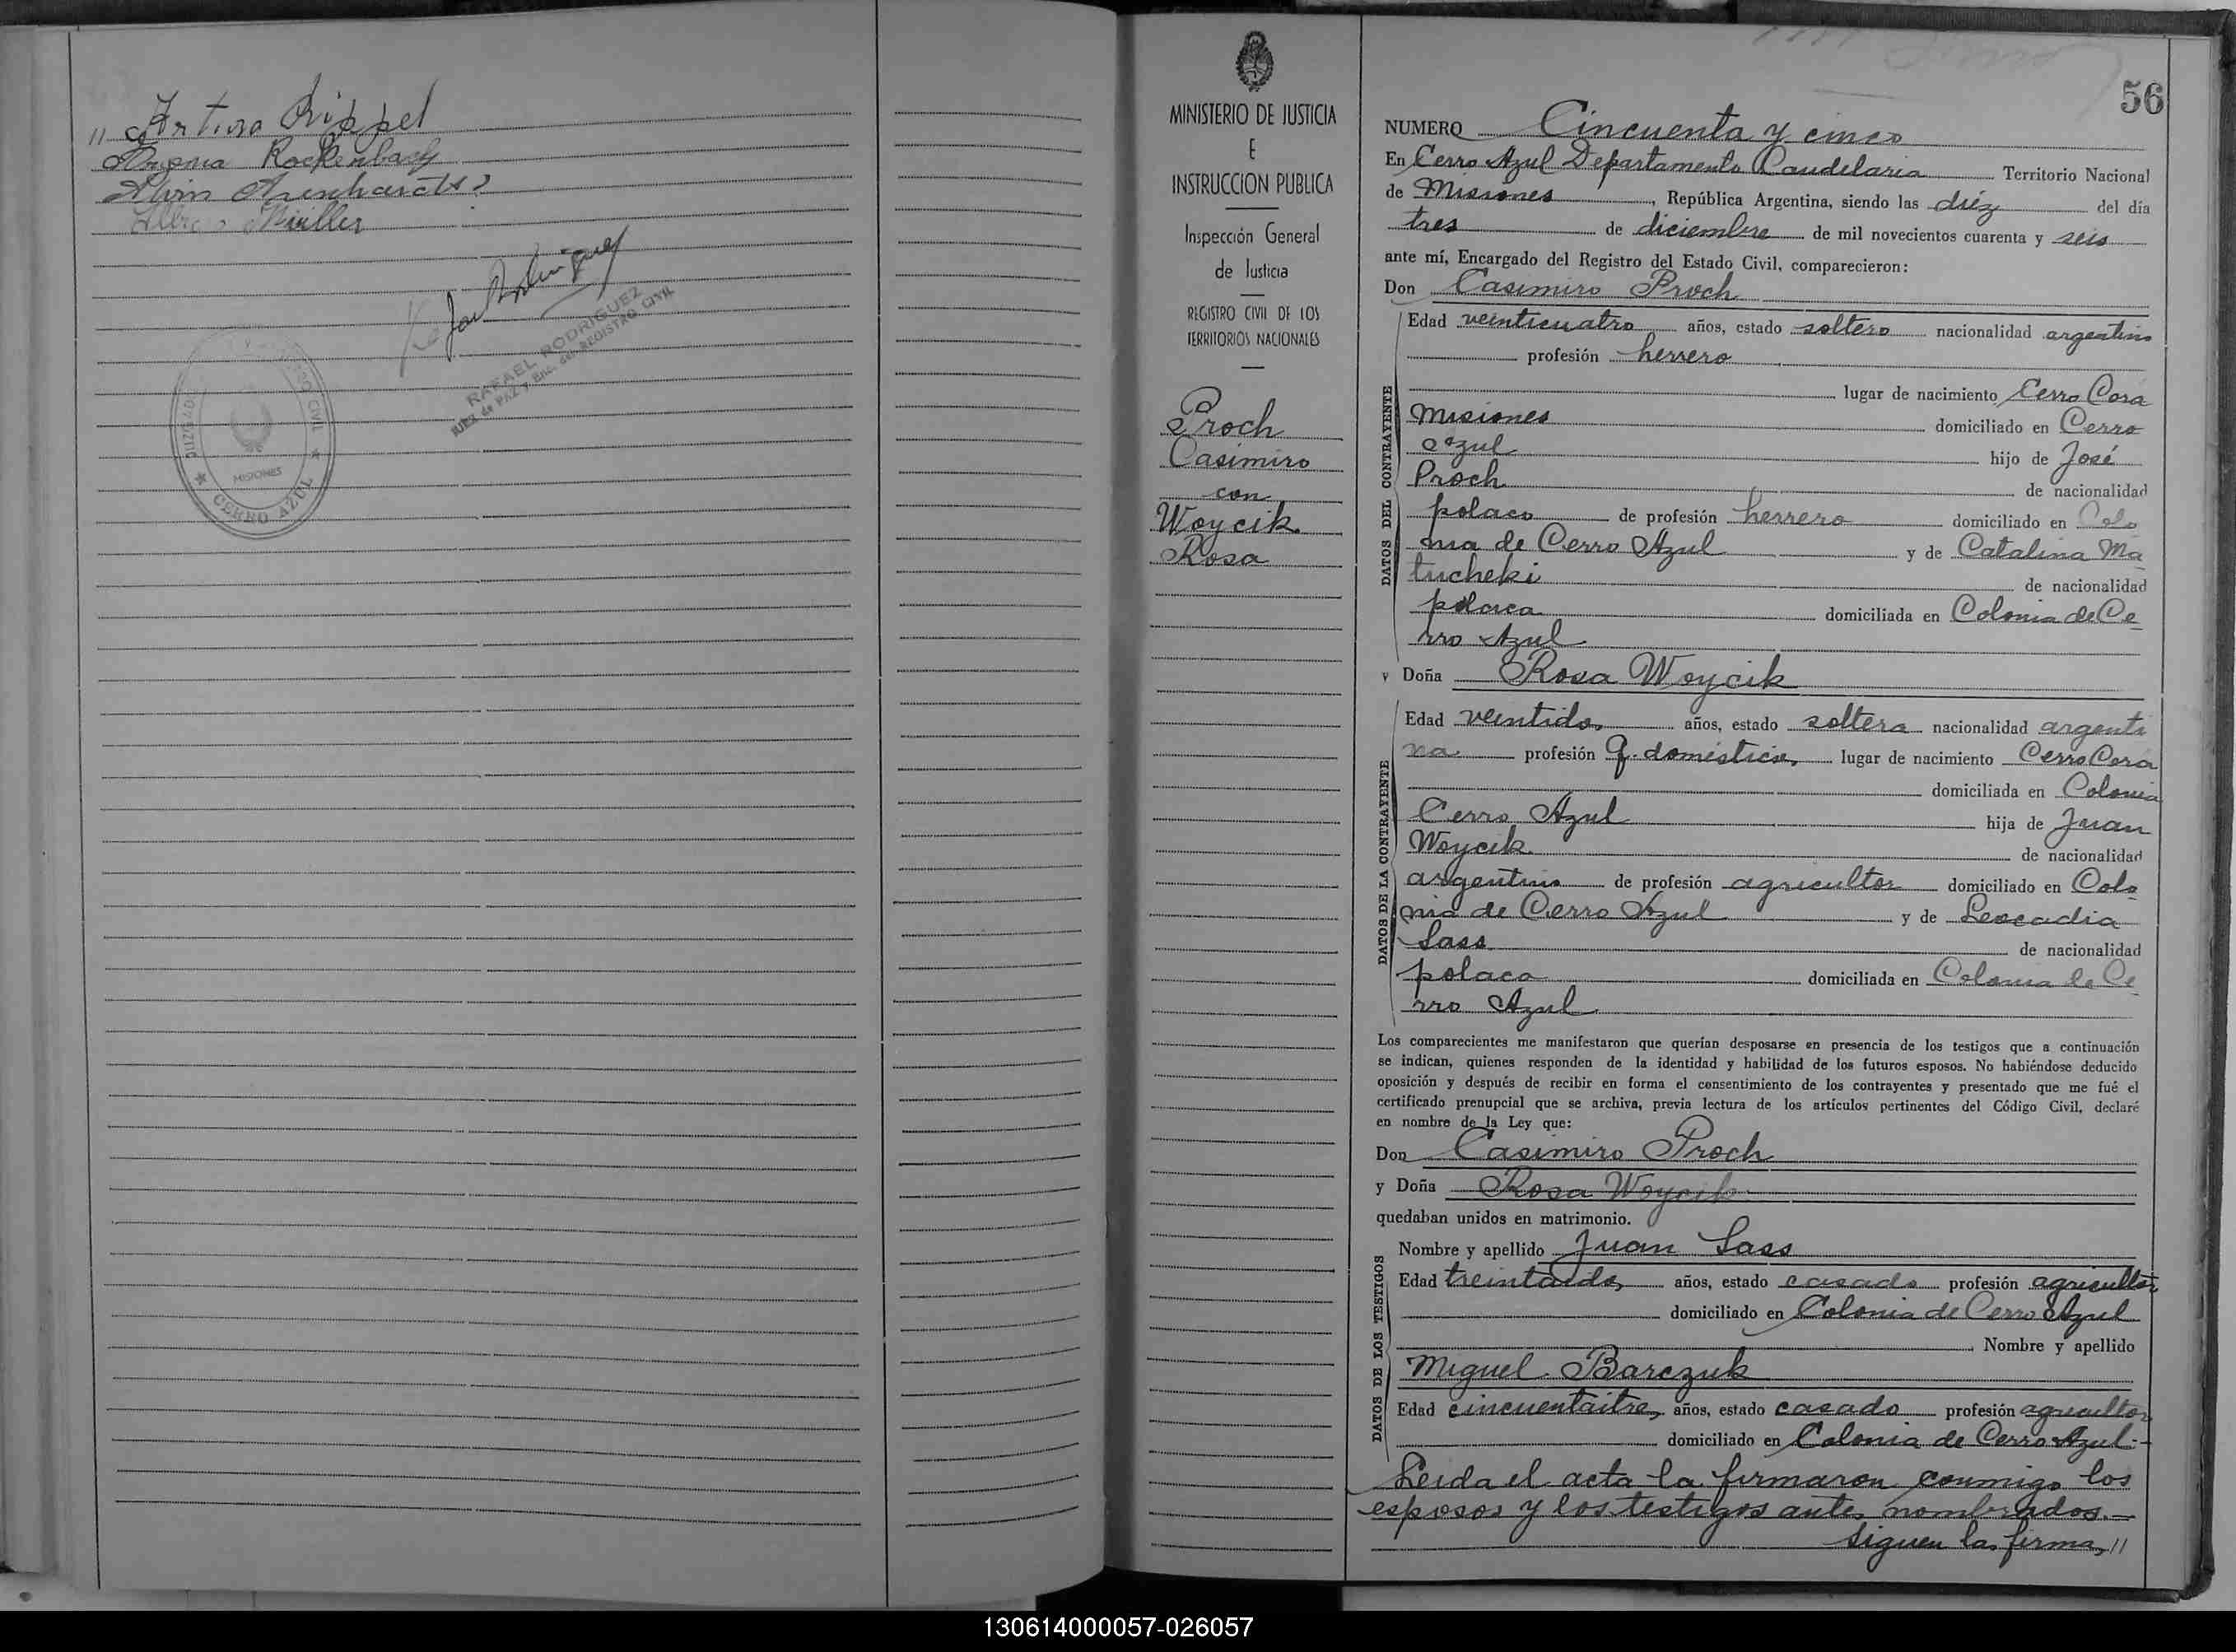 // Arturo Rippel
Rockenbach
Alvin
Müller
RAFAEL RODRIGUEZ
JUEZ de PAZ y Enc. del REGISTRO CIVIL
REGISTRO CIVIL
MISIONES
★ CERRO AZUL ★
MINISTERIO DE JUSTICIA
E
INSTRUCCION PUBLICA
Inspección General
de Justicia
REGISTRO CIVIL DE LOS
TERRITORIOS NACIONALES
Proch
Casimiro
con
Woycik
Rosa
56
NUMERO Cincuenta y cinco
En Cerro Azul Departamento Candelaria Territorio Nacional
de Misiones, República Argentina, siendo las diéz del día
tres de diciembre de mil novecientos cuarenta y seis
ante mí, Encargado del Registro del Estado Civil, comparecieron:
Don Casimiro Proch
DATOS DEL CONTRAYENTE
Edad veinticuatro años, estado soltero nacionalidad argentino
profesión herrero
lugar de nacimiento Cerro Corá
Misiones domiciliado en Cerro
Azul hijo de José
Proch de nacionalidad
polaco de profesión herrero domiciliado en Colo
nia de Cerro Azul y de Catalina Ma
tucheki de nacionalidad
polaca domiciliada en Colonia de Ce
rro Azul
y Doña Rosa Woycik
DATOS DE LA CONTRAYENTE
Edad veintidos años, estado soltera nacionalidad argenti
na profesión q. domésticos lugar de nacimiento Cerro Corá
domiciliada en Colonia
Cerro Azul hija de Juan
Woycik de nacionalidad
argentino de profesión agricultor domiciliado en Colo
nia de Cerro Azul y de Leocadia
Sass de nacionalidad
polaca domiciliada en Colonia de Ce
rro Azul
Los comparecientes me manifestaron que querían desposarse en presencia de los testigos que a continuación
se indican, quienes responden de la identidad y habilidad de los futuros esposos. No habiéndose deducido
oposición y después de recibir en forma el consentimiento de los contrayentes y presentado que me fué el
certificado prenupcial que se archiva, previa lectura de los artículos pertinentes del Código Civil, declaré
en nombre de la Ley que:
Don Casimiro Proch
y Doña Rosa Woycik
quedaban unidos en matrimonio.
DATOS DE LOS TESTIGOS
Nombre y apellido Juan Sass
Edad treintaidos años, estado casado profesión agricultor
domiciliado en Colonia de Cerro Azul
Nombre y apellido
Miguel Barczuk
Edad cincuentaitres años, estado casado profesión agricultor
domiciliado en Colonia de Cerro Azul.-
Leida el acta la firmaron conmigo los
esposos y los testigos antes nombrados.-
Siguen las firmas //
130614000057-026057